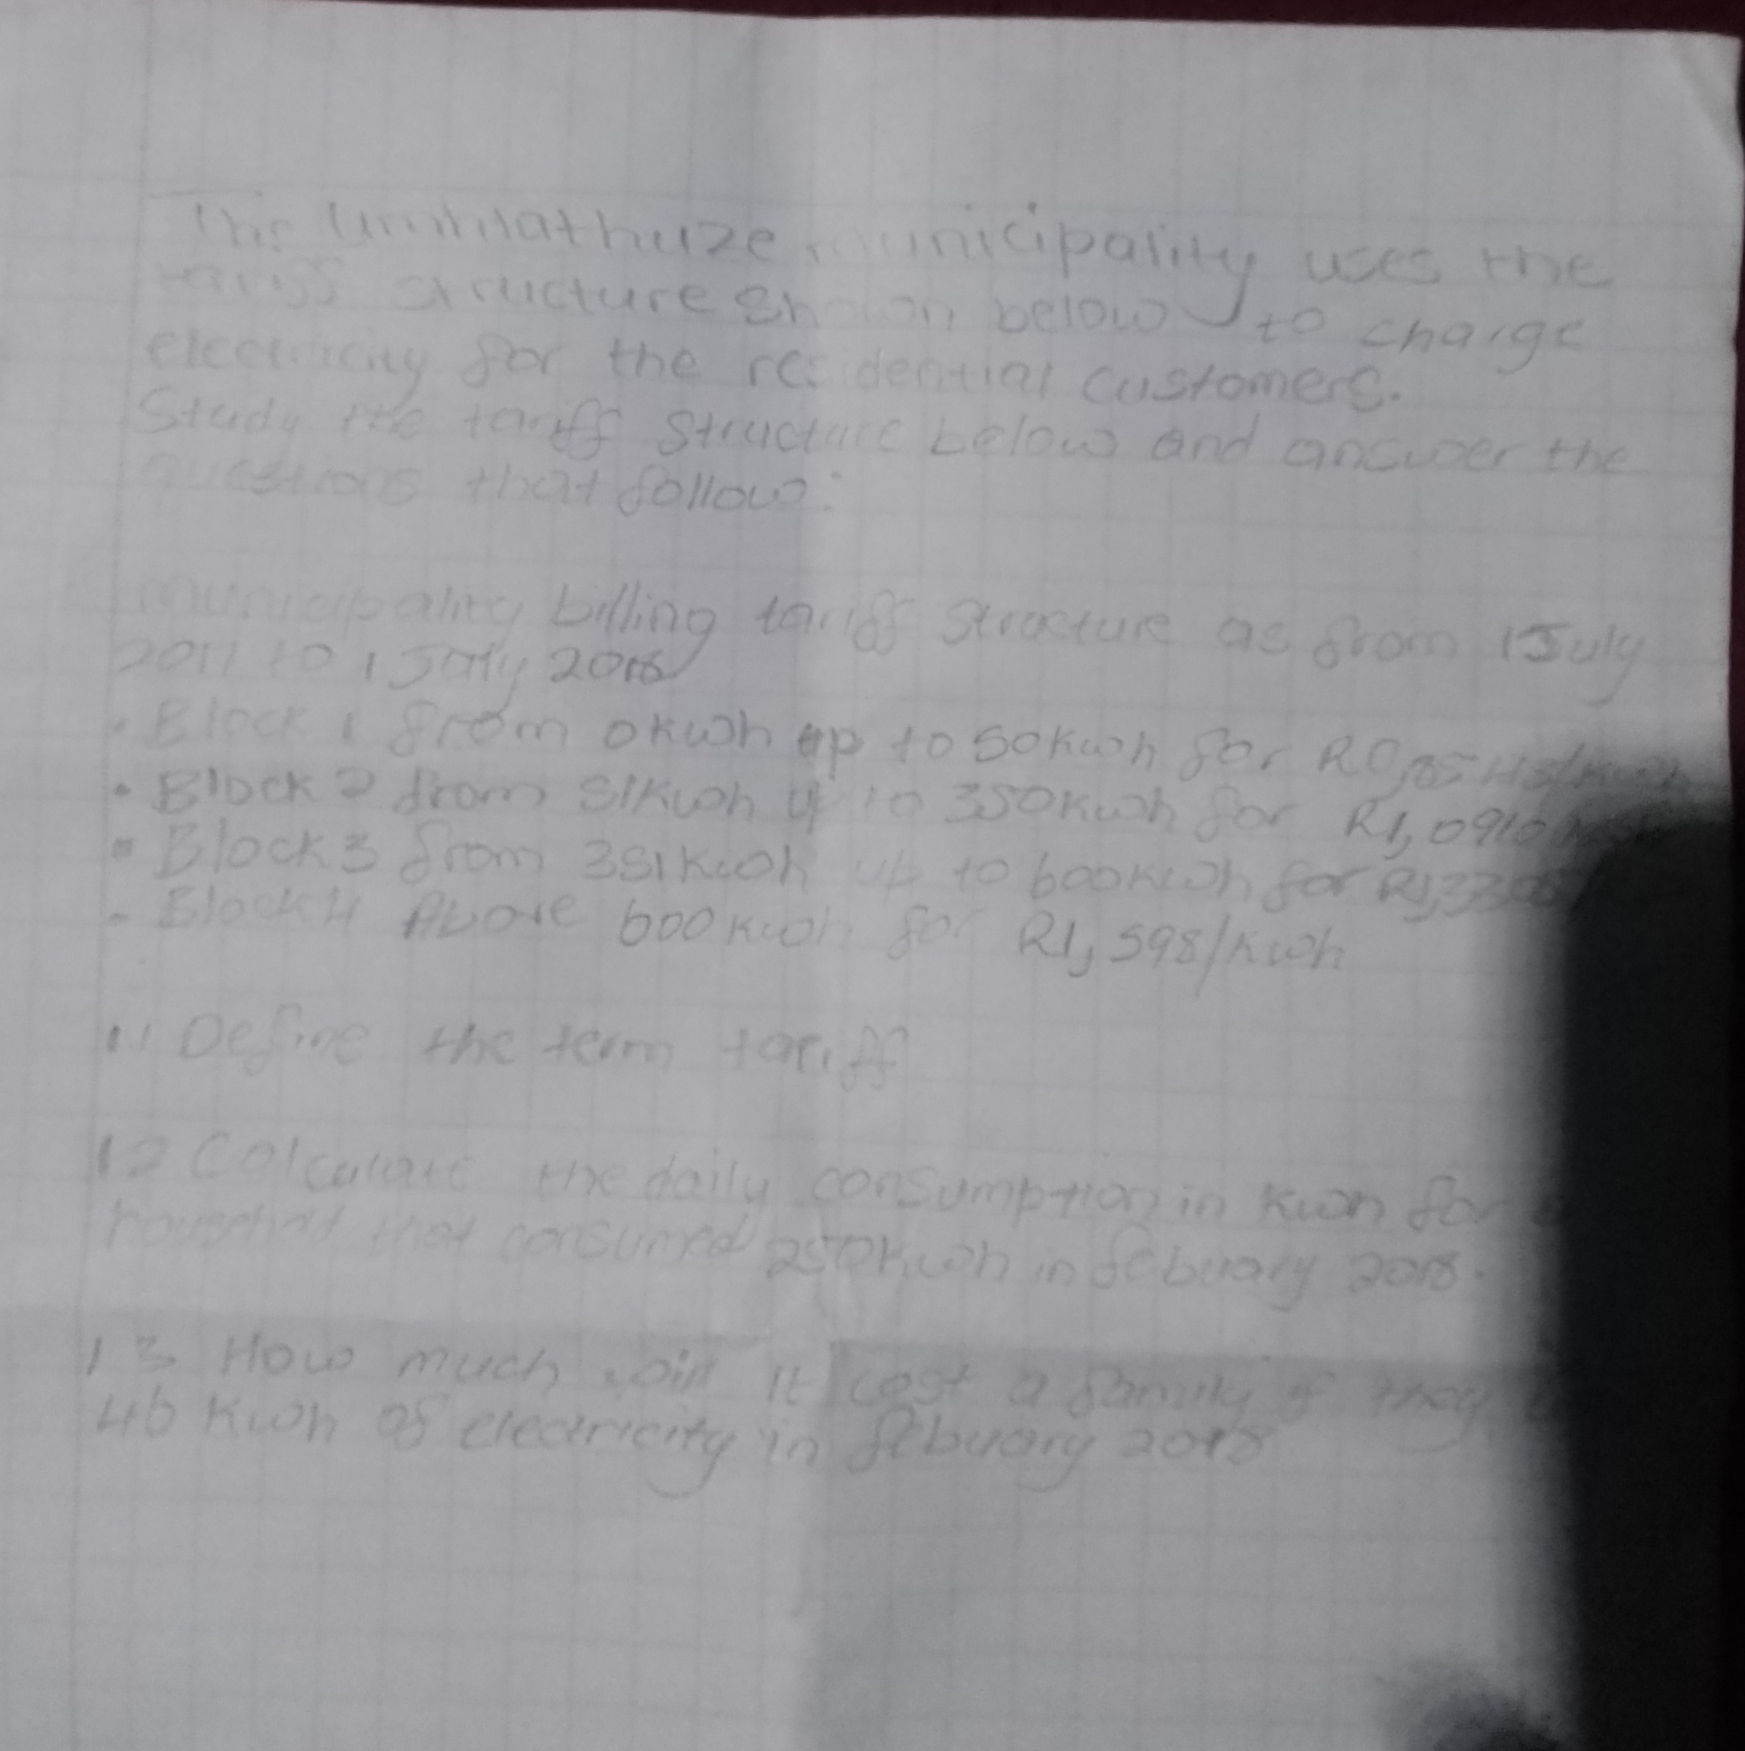 The umhlathuze municipality uses the
tariff structure shown below to charge
electricity for the residential customers.
Study the tariff structure below and answer the
questions that follow:
municipality billing tariff structure as from 1 July
2017 to 1 July 2018
• Block 1 from 0kwh up to 50kwh for
• Block 2 from 51kwh up to 350kwh for R1,0910
• Block 3 from 351kwh up to 600kwh for
• Block 4 Above 600kwh for R1,598/kwh
1.1 Define the term tariff
1.2 Calculate the daily consumption in kwh for a
household that consumed 250kwh in febuary 2018.
1.3 How much will it cost a family if they
46 kwh of electricity in febuary 2018